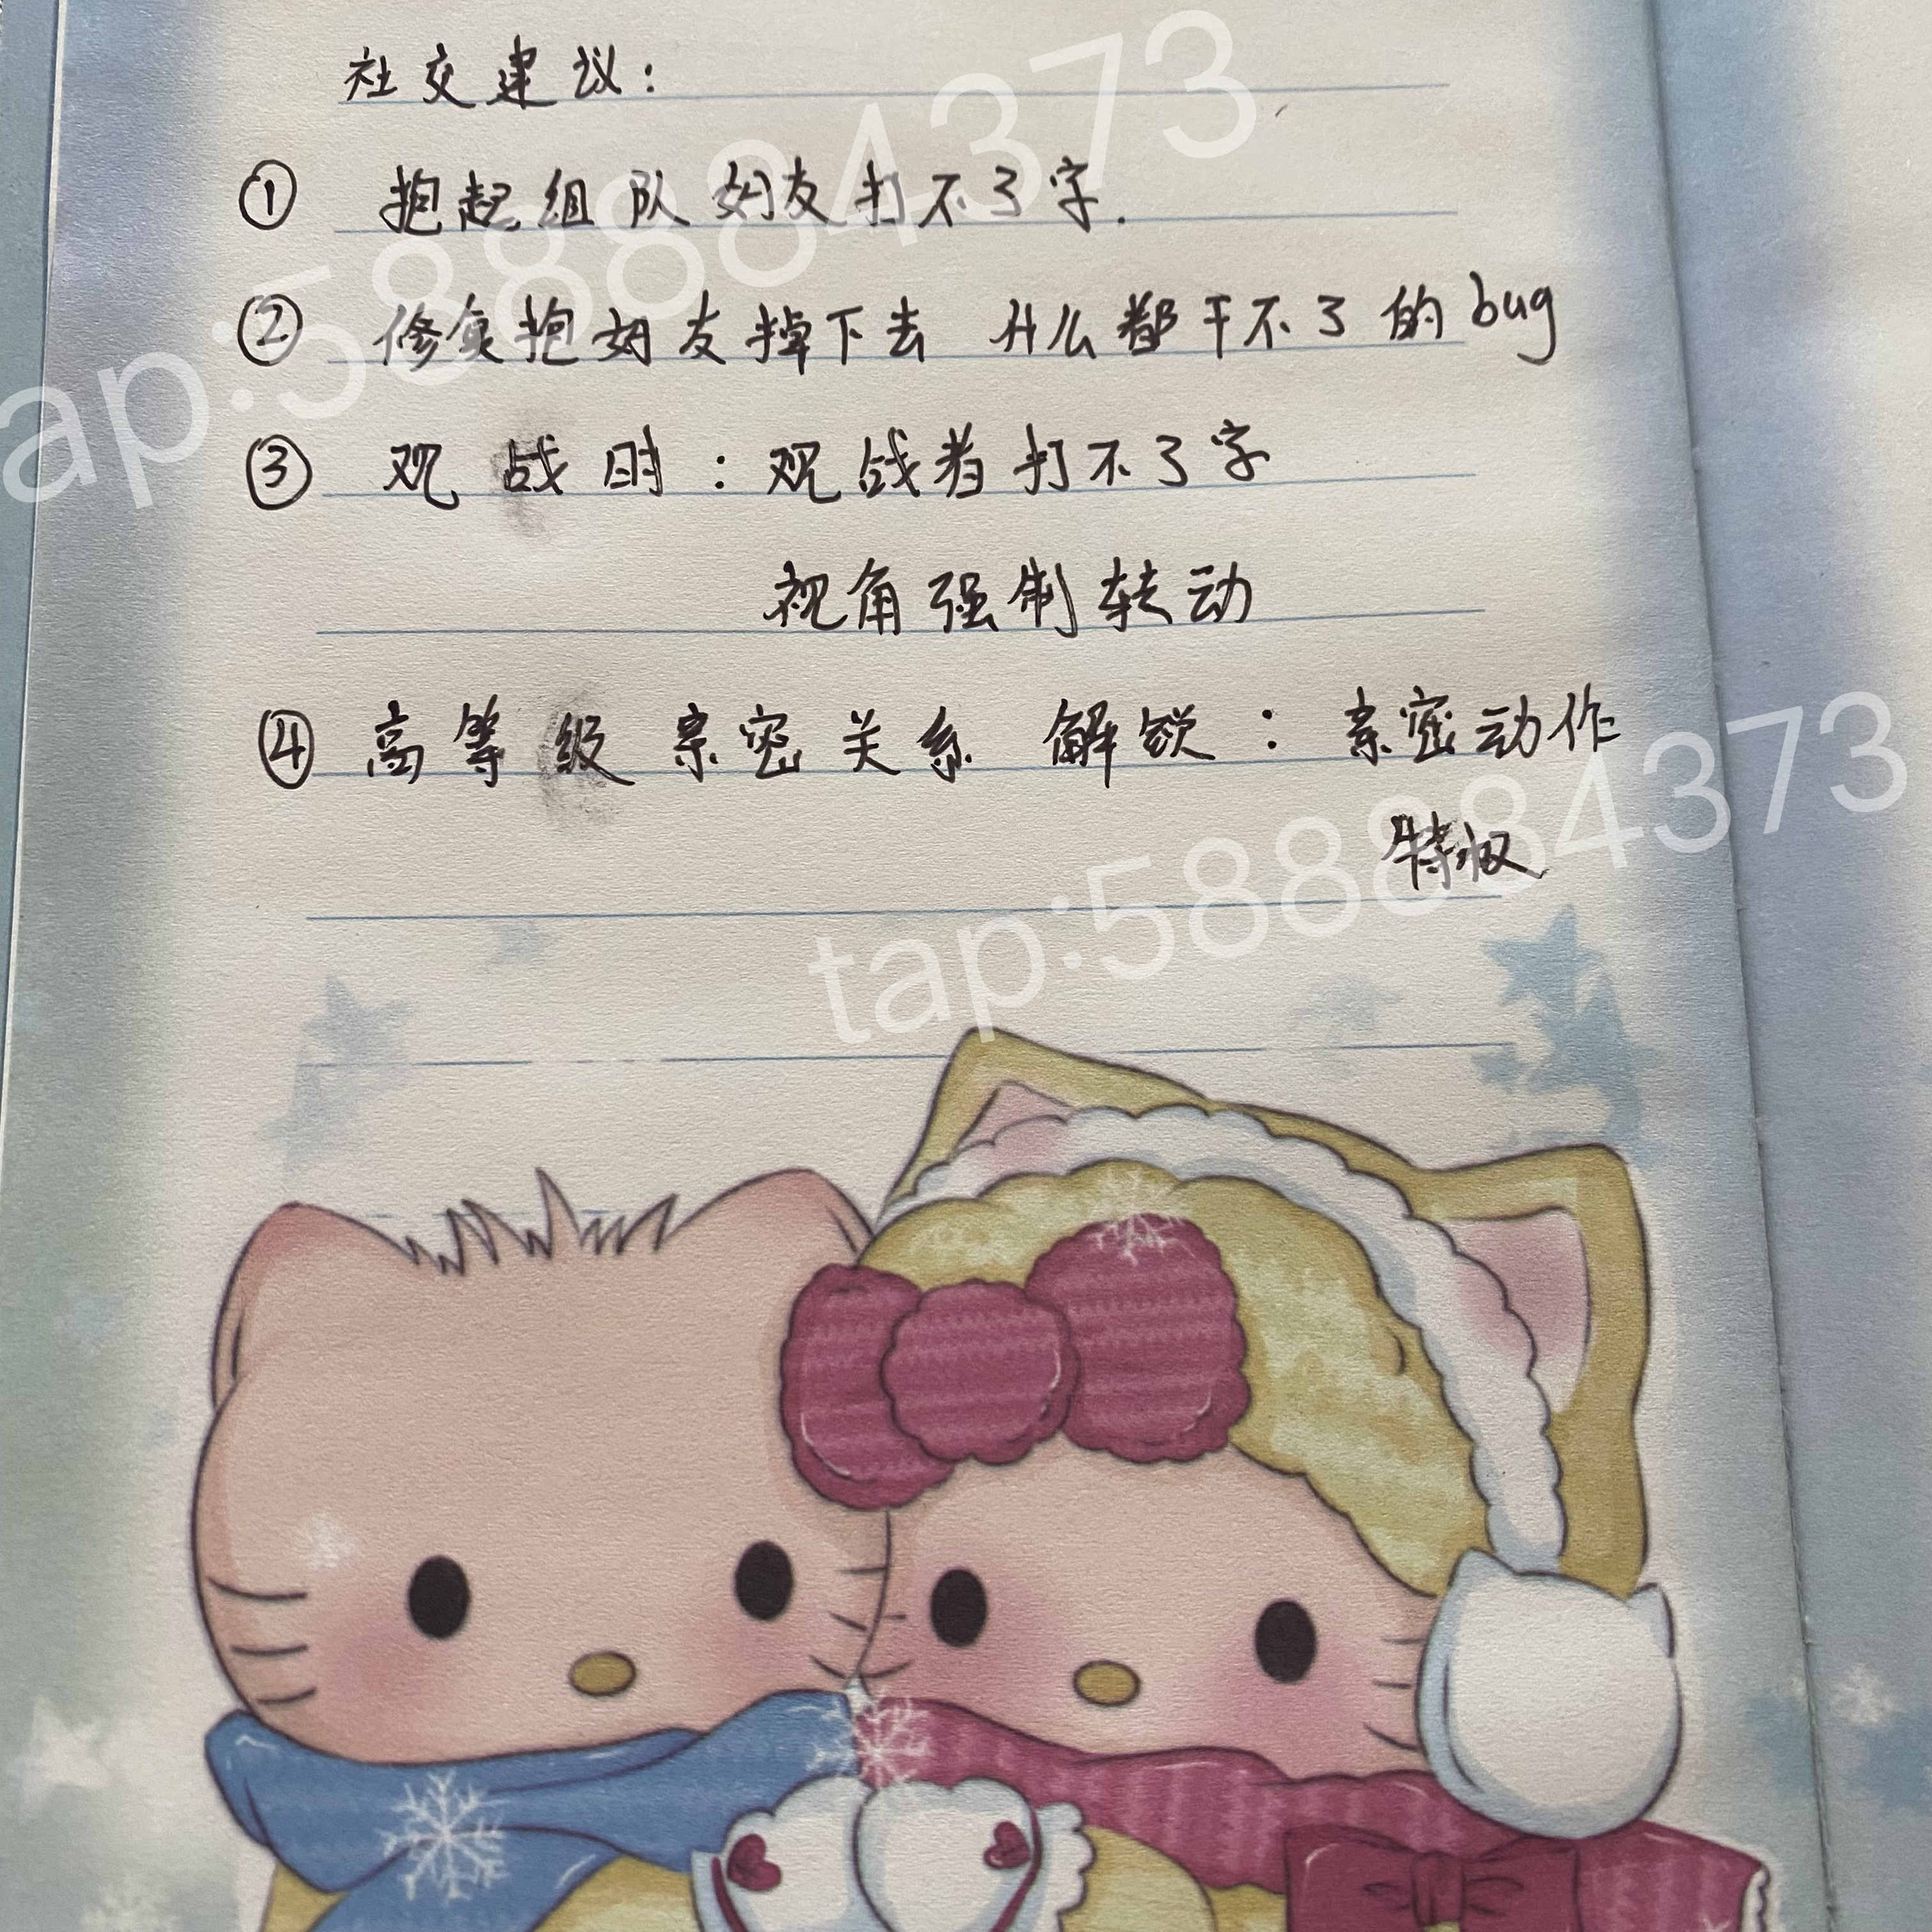 社交建议：
① 抱起组队好友打不了字.
② 修复抱好友掉下去 什么都干不了的bug
③ 观战时：观战者打不了字
视角强制转动
④ 高等级亲密关系 解锁：亲密动作
特权
ap:588884373
tap:588884373